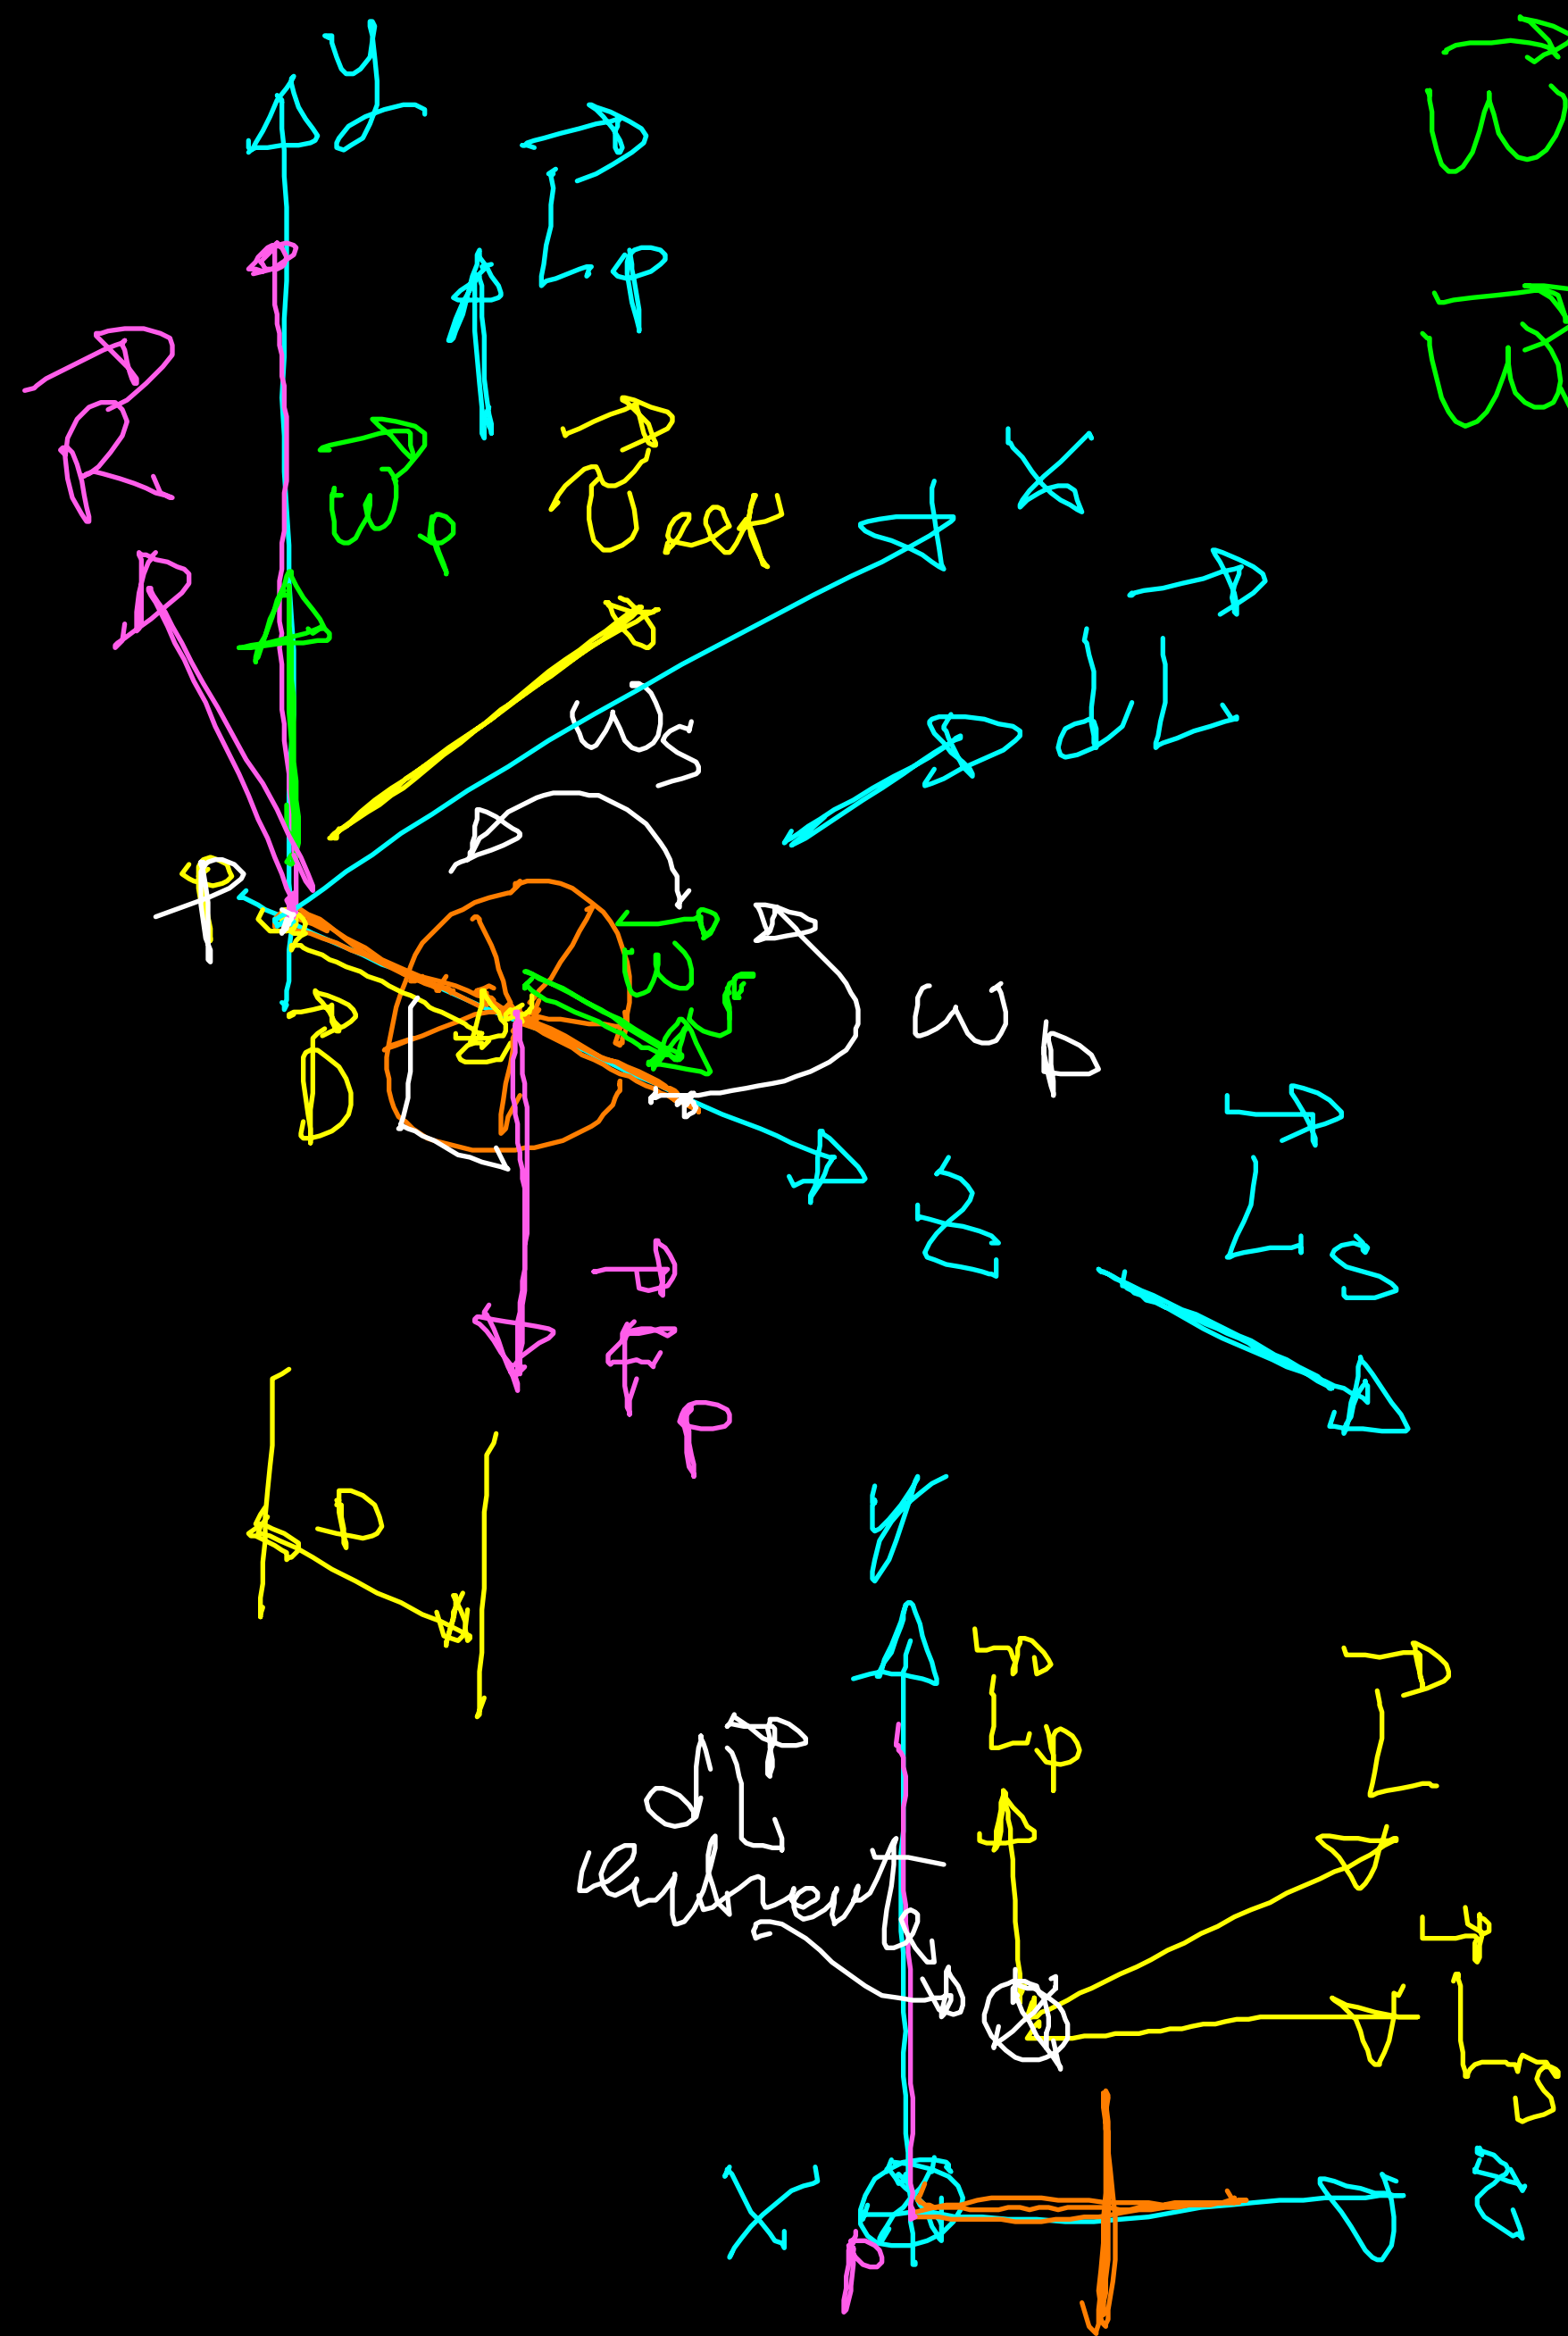 y
L⃗p
ω⃗
ω⃗
R⃗
ω⃗p
x
dL⃗
ωs
P
ω⃗r
ωp
D⃗
z
L⃗s
F⃗p
D
y
L⃗p
L⃗
dL⃗
entrante
L⃗s
x
z
p